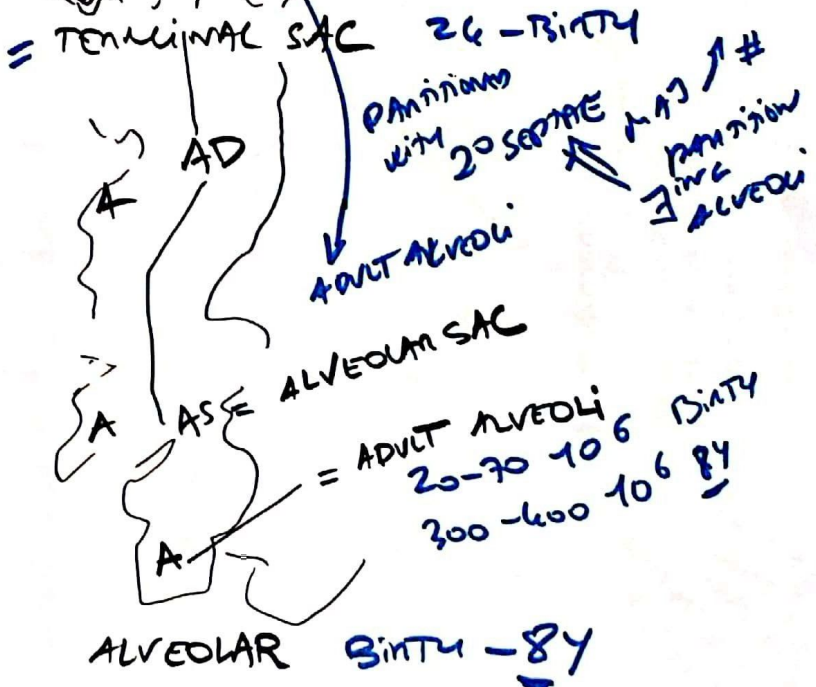 = TERMINAL SAC 24 - BIRTH
PARTITIONED
WITH 2° SEPTAE
MAJ ↑ #
PARTITION
∃ING
ALVEOLI
AD
A
ADULT ALVEOLI
A AS = ALVEOLAR SAC
= ADULT ALVEOLI
20-70 10⁶ BIRTH
300-400 10⁶ 8Y
A
ALVEOLAR BIRTH - 8Y